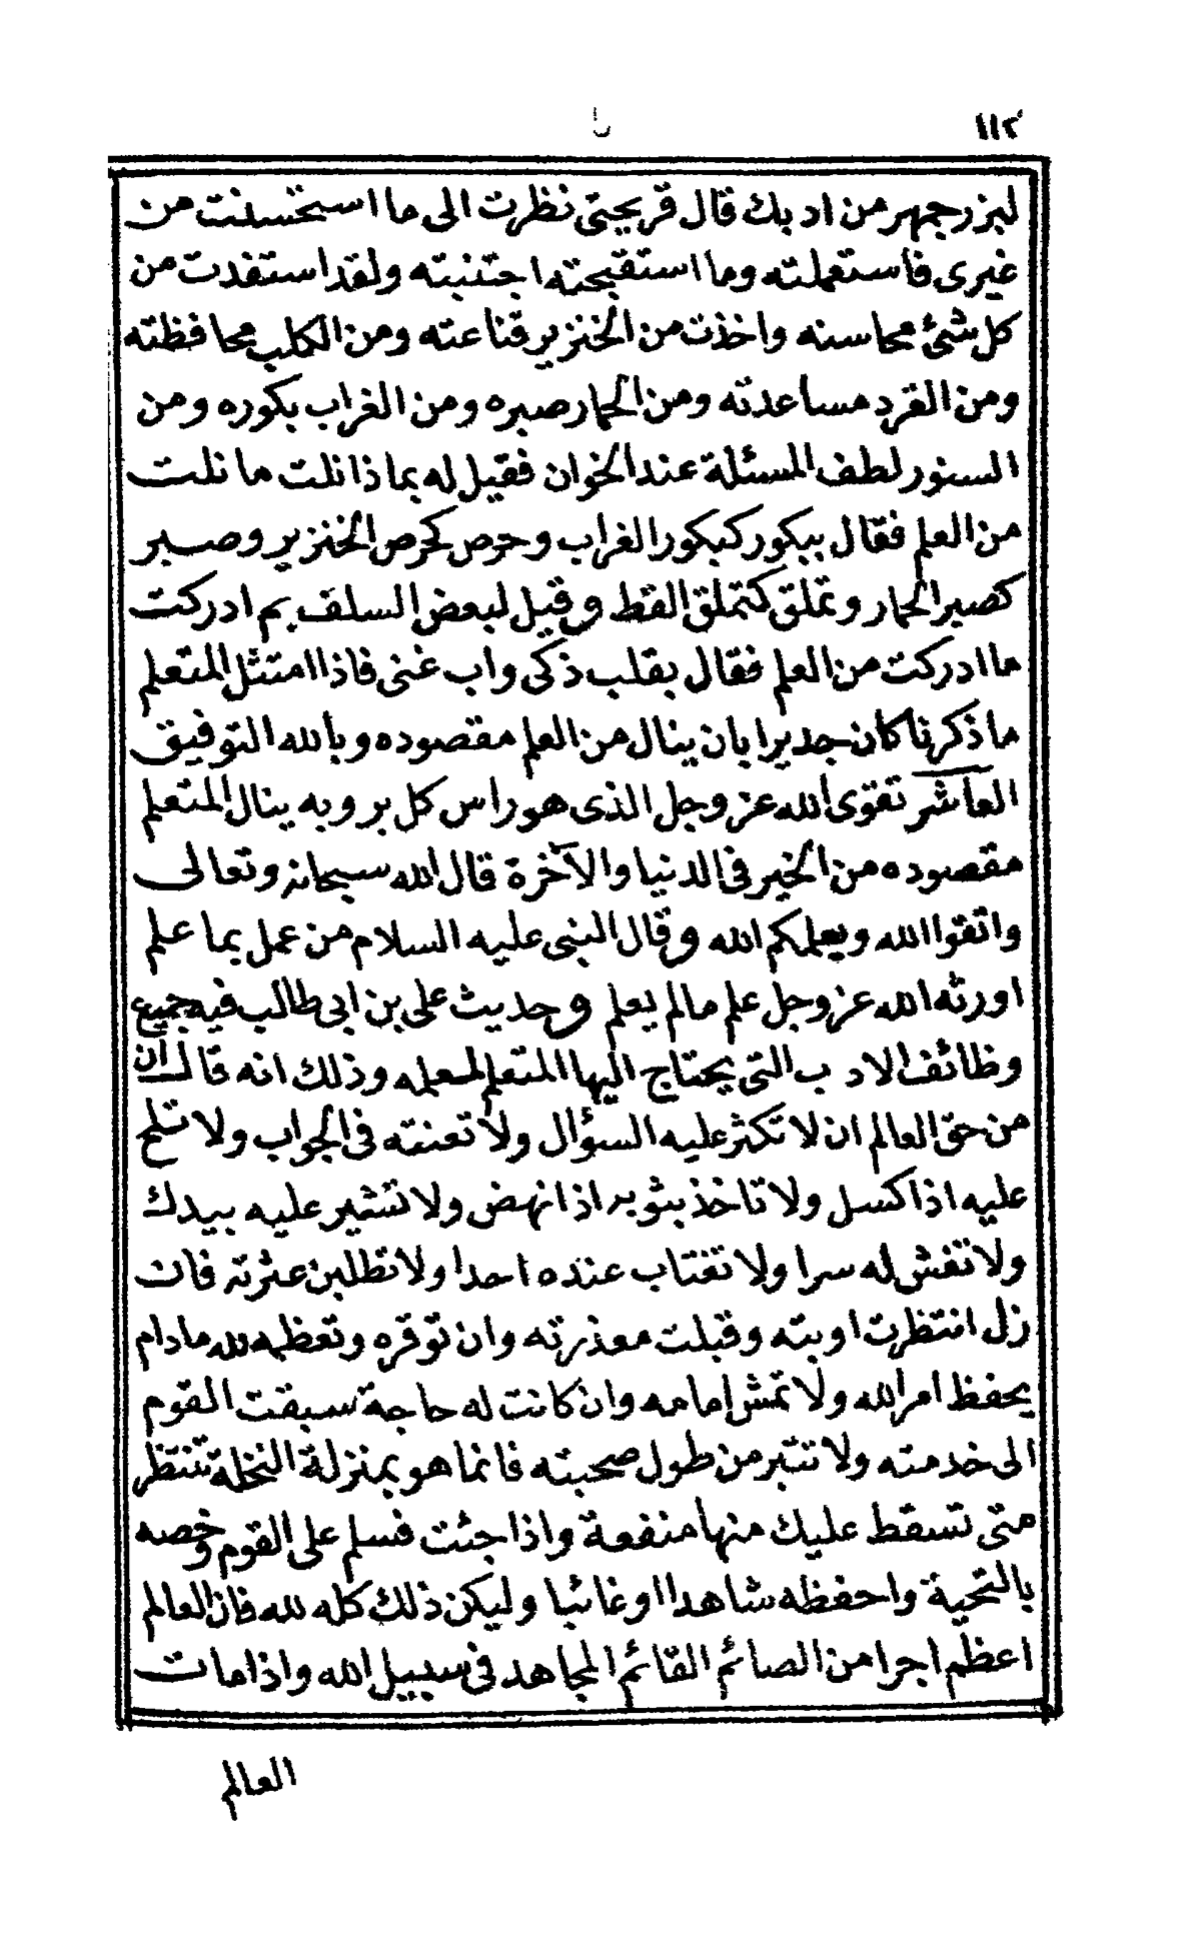 ١١٢
لبزرجمهر من ادبك قال قريحتى نظرت الى ما استحسنت من
غيرى فاستعملته وما استقبحته اجتنبته ولقد استفدت من
كل شئ محاسنه واخذت من الخنزير قناعته ومن الكلب محافظته
ومن القرد مساعدته ومن الحمار صبره ومن الغراب بكوره ومن
السنور لطف المسئلة عند الخوان فقيل له بماذا نلت ما نلت
من العلم فقال ببكور كبكور الغراب وحرص كحرص الخنزير وصبر
كصبر الحمار وتملق كتملق القط وقيل لبعض السلف بم ادركت
ما ادركت من العلم فقال بقلب ذكى واب غنى فاذا امتثل المتعلم
ما ذكرنا كان جديرا بان ينال من العلم مقصوده وبالله التوفيق
العاشر تقوى الله عز وجل الذى هو راس كل بر وبه ينال المتعلم
مقصوده من الخير فى الدنيا والآخرة قال الله سبحانه وتعالى
واتقوا الله ويعلمكم الله وقال النبى عليه السلام من عمل بما علم
اورثه الله عز وجل علم مالم يعلم وحديث على بن ابى طالب فيه جميع
وظائف الادب التى يحتاج اليها المتعلم لمعلمه وذلك انه قال ان
من حق العالم ان لا تكثر عليه السؤال ولا تعنته فى الجواب ولا تلح
عليه اذا كسل ولا تاخذ بثوبه اذا نهض ولا تشير عليه بيدك
ولا تفش له سرا ولا تغتاب عنده احدا ولا تطلبن عثرته فان
زل انتظرت اوبته وقبلت معذرته وان توقره وتعظمه لله مادام
يحفظ امر الله ولا تمش امامه وان كانت له حاجة سبقت القوم
الى خدمته ولا تتبر من طول صحبته فانما هو بمنزلة النخلة تنتظر
متى تسقط عليك منها منفعة واذا جئت فسلم على القوم وخصه
بالتحية واحفظه شاهدا او غائبا وليكن ذلك كله لله فان العالم
اعظم اجرا من الصائم القائم المجاهد فى سبيل الله واذا مات
العالم